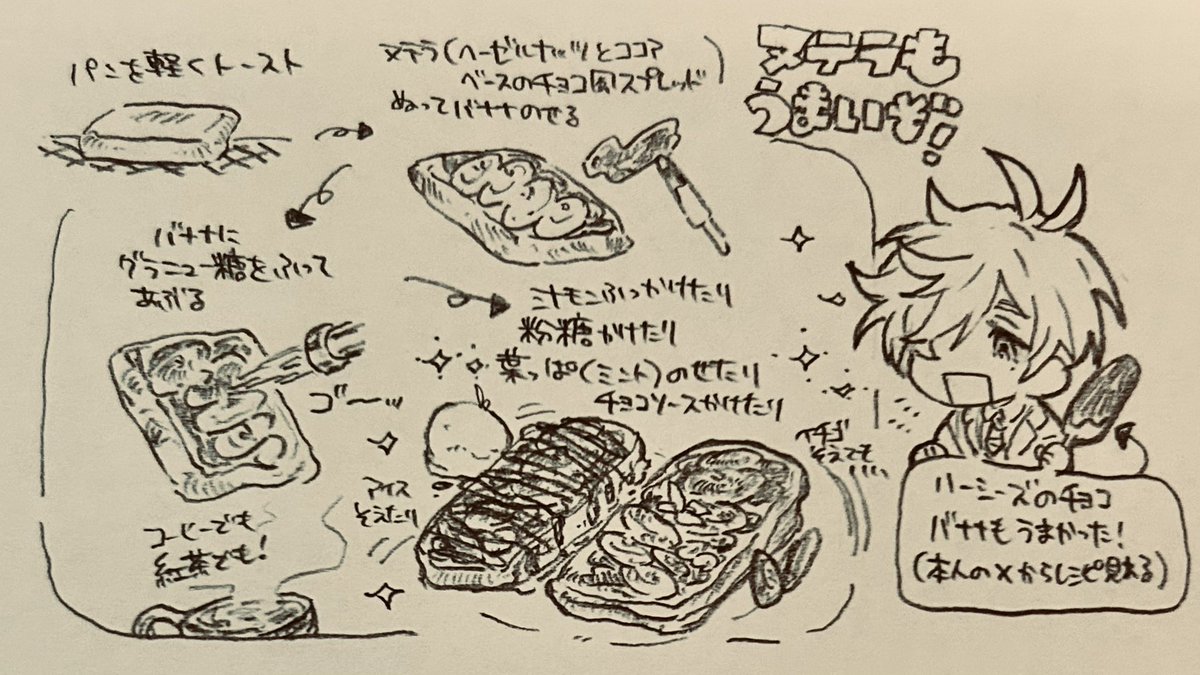 パンを軽くトースト
ヌテラ(ヘーゼルナッツとココア
ベースのチョコ風スプレッド)
ぬってバナナのせる
ヌテラも
うまいぞ!
バナナに
グラニュー糖をふって
あぶる
シナモンふっかけたり
粉糖かけたり
葉っぱ(ミント)のせたり
チョコソースかけたり
ゴ〜ッ
アイス
そえたり
イチゴ
そえても
コーヒーでも
紅茶でも!
ハーシーズのチョコ
バナナもうまかった!
(本人のXからレシピ見れる)